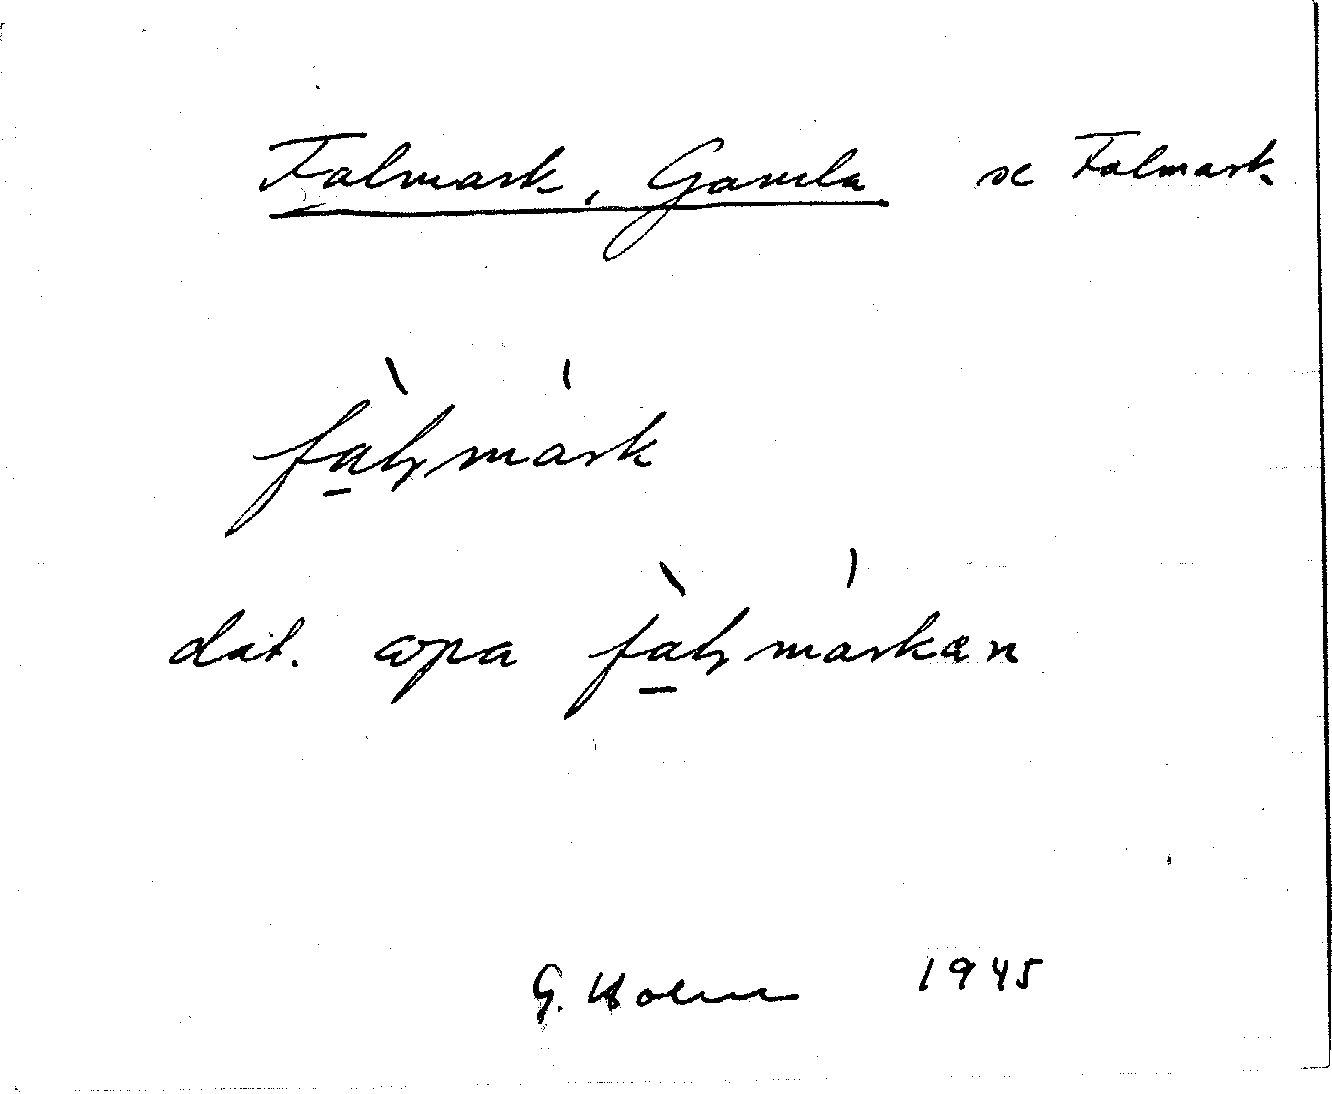 Falmark, Gamla se Falmark.
fàlmárk
dat. opa fàlmárkæn
G. Holm 1945